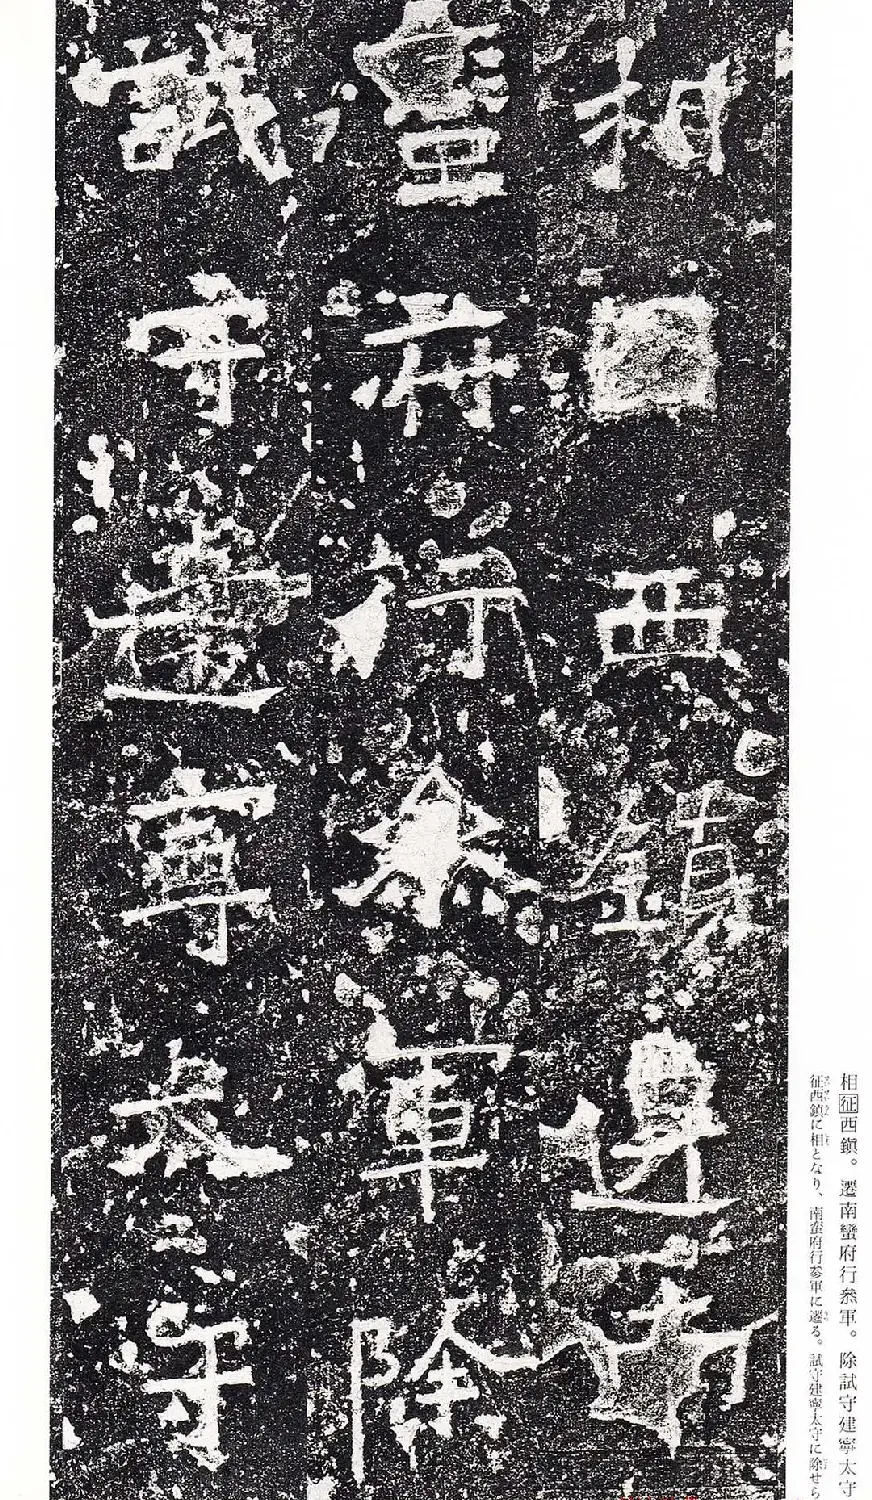 相征西鎮。遷南蠻府行叅軍。除試守建寧太守
征西鎮に相となり、南蠻府行參軍に遷る。試守建寧太守に除せら
相西鎮遷南
蠻府行叅軍除
試守建寧太守